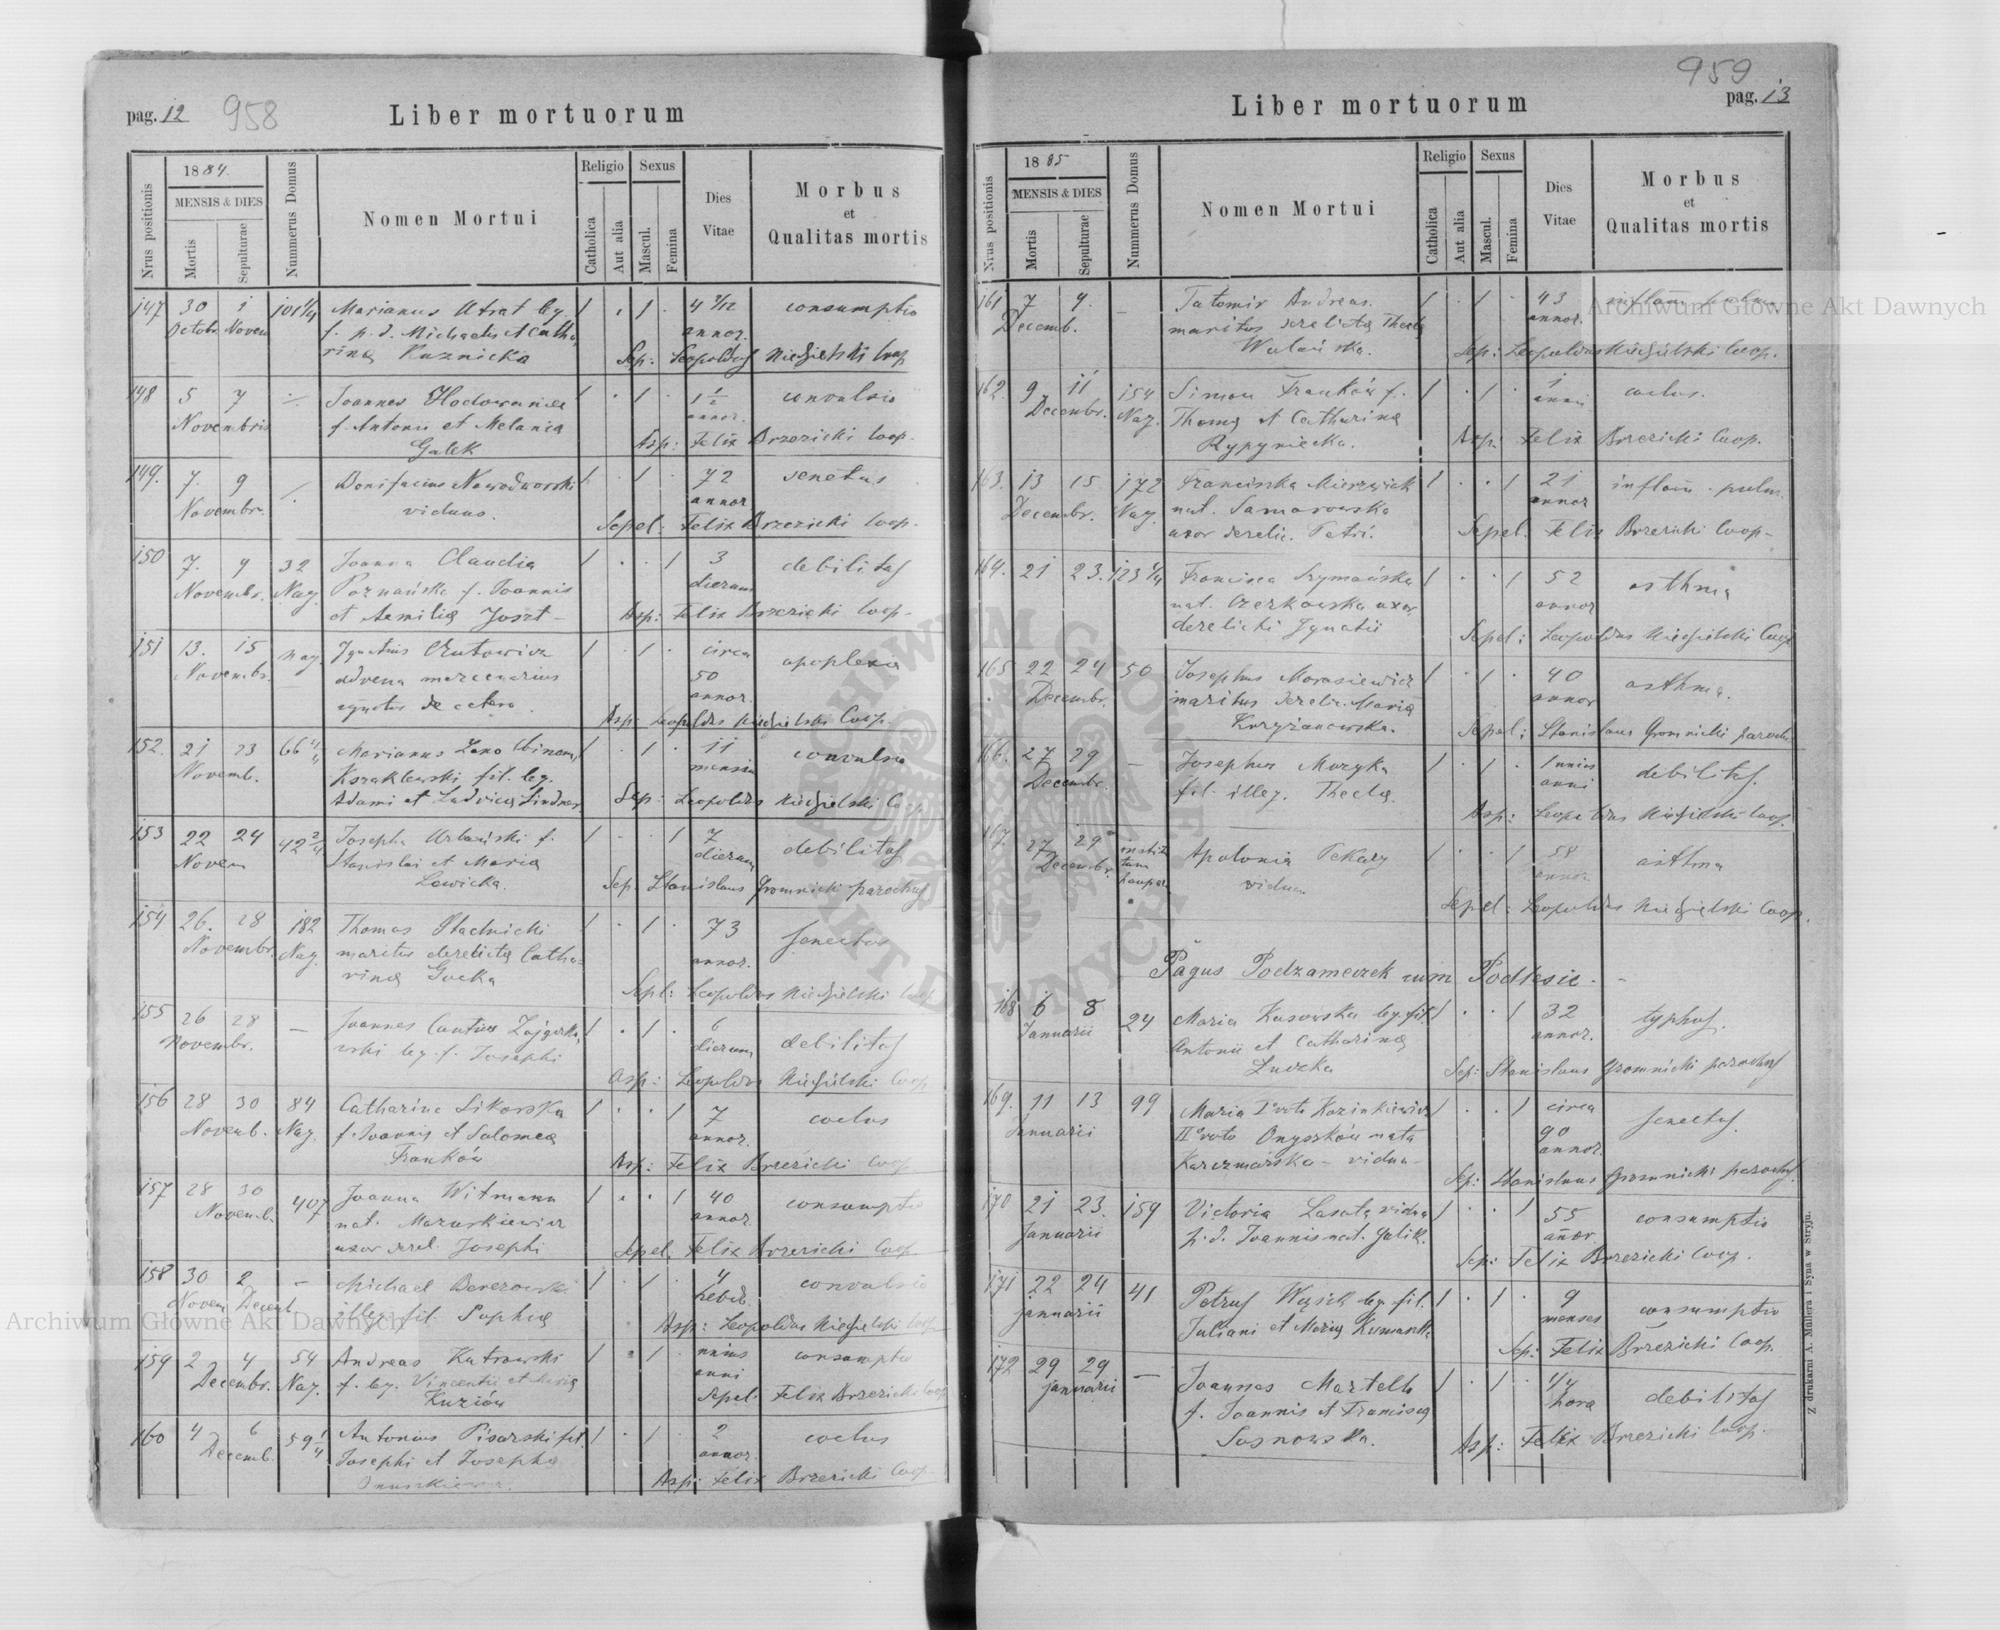 pag. 12 958
Liber mortuorum
Nrus positionis
1884.
MENSIS & DIES
Mortis
Sepulturae
Nummerus Domus
Nomen Mortui
Religio
Catholica
Aut alia
Sexus
Mascul.
Femina
Dies
Vitae
Morbus
et
Qualitas mortis
147 30 1 101 1/4 Marianus Utrat leg. 1 . 1 . 4 3/12 consumptio
Octobr. Novem f. p. d. Michaelis et Catha annor.
rina Kuznicka Sep: Leopoldus Coop
148 5 7 Joannes f. 1 . 1 . 1 1/2 convulsio
Novembris f. Antonii et Melania annor.
Galek Asp: Felix Brzezicki Coop.
149. 7. 9 Bonifacius Nowodworski 1 . 1 . 72 senectus
Novembr. viduus. annor
Sepel: Felix Brzezicki Coop.
150 7. 9 32 Joanna Claudia 1 . . 1 3 debilitas
Novembr. Nag. Poznańska f. Joannis dierum
et Aemilia Joszt - Asp: Felix Brzezicki Coop-
151 13. 15 nag. Ignatius 1 . 1 . circa apoplexia
Novembr. advena mercenarius 50
de cetero annor.
Asp: Leopoldus Coop.
152. 21 23 66 Marianus 1 . 1 . 11 convulsio
Novemb. fil. leg. mensium
Adami et Ludvica Lindner Sep: Leopoldus Coop
153 22 24 42 2/4 Josepha Urbański f. 1 . . 1 7 debilitas
Novem Stanislai et Maria dierum
Lewicka. Sep. Stanislaus Gromnicki parochus
154 26. 28 182 Thomas Stachnicki 1 . 1 . 73 senectus
Novembr. Nag. maritus derelicta Catha- annor.
rina Gocka Sepl: Leopoldus Coop
155 26 28 — Joannes Cantius 1 . 1 . 6 debilitas
Novembr. leg. f. Josephi dierum
Asp: Leopoldus Coop
156 28 30 84 Catharina Sikorska 1 . . 1 7 coclus
Novemb. Nag. f. Joannis et Salomea annor.
Franków Asp: Felix Brzezicki Coop
157 28 30 407 Joanna Witmann 1 . . 1 40 consumptio
Novemb. nat. Mazurkiewicz annor.
uxor derel. Josephi Sepel. Felix Brzezicki Coop
158 30 2 — Michael Berezowski 1 . 1 . 4 convulsio
Novem Decemb illeg. fil. Sophia hebd.
Asp: Leopoldus Coop
159 2 4 54 Andreas Kutrowski 1 . 1 . unius consumptio
Decembr. Nag. f. leg. Vincentii et Maria anni
Kuziów Sepel. Felix Brzezicki Coop
160 4 6 59 1/4 Antonius Pisarski fil. 1 . 1 . 2 coclus
Decemb. Josephi et Josepha annor.
Asp: Felix Brzezicki Coop-
959
pag. 13
Liber mortuorum
Nrus positionis
1885
MENSIS & DIES
Mortis
Sepulturae
Nummerus Domus
Nomen Mortui
Religio
Catholica
Aut alia
Sexus
Mascul.
Femina
Dies
Vitae
Morbus
et
Qualitas mortis
161 7 9. — Tatomir Andreas. 1 . 1 . 43 inflam. pulm.
Decemb. maritus derelicta Thecla annor.
Wolańska. Sep: Leopoldus Coop.
162. 9 11 154 Simon Franków f. 1 . 1 . 1 coclus.
Decembr. Nag. Thoma et Catharina anni
Rypyniecka. Asp: Felix Brzezicki Coop.
163. 13 15 172 Franciszka 1 . . 1 21 inflam. pulm.
Decembr. Nag. nat. annor
uxor derelic. Petri. Sepel. Felix Brzezicki Coop-
164. 21 23. 123 1/4 Francisca Szymańska 1 . . 1 52 asthma
nat. Czerkawska uxor annor
derelicti Ignatii Sepel: Leopoldus Coop
165 22 24 50 Josephus Morasiewicz 1 . 1 . 40 asthma.
Decembr. maritus derelic. Maria annor
Krzyżanowska. Sepel: Stanislaus Gromnicki paroch
166. 27 29 — Josephus Muzyka 1 . 1 . unius debilitas.
Decembr. fil. illeg. Thecla. anni
Asp: Leopoldus Coop.
167. 27 29 institu Apolonia Tekary 1 . . 1 58 asthma
Decembr. tum vidua annor
pauper. Sepel: Leopoldus Coop.
Pagus Podzameczek cum Podlesie. -
168 6 8 24 Maria Kusowska leg. fil. 1 . . 1 32 typhus.
Januarii Antonii et Catharina annor.
Luczka Sep: Stanislaus Gromnicki parochus
169. 11 13 99 Maria I voto Kozinkiewicz 1 . . 1 circa senectus.
Januarii II voto Onyszków nata 90
Karczmarska - vidua - annor.
Sep: Stanislaus Gromnicki parochus.
170 21 23. 159 Victoria Lasota vidua 1 . . 1 55 consumptio
Januarii p. d. Joannis nat. Galik. annor.
Sep: Felix Brzezicki Coop.
171 22 24 41 Petrus Węsik leg. fil. 1 . 1 . 9 consumptio
Januarii Juliani et Maria menses
Sep: Felix Brzezicki Coop.
172 29 29 — Joannes Martelli 1 . 1 . 1/4 debilitas
Januarii f. Joannis et Francisca hora
Sosnowska. Asp: Felix Brzezicki Coop.
Z drukarni A. Müllera i Syna w Stryju.
Archiwum Główne Akt Dawnych
Archiwum Główne Akt Dawnych
ARCHIWUM GŁÓWNE AKT DAWNYCH